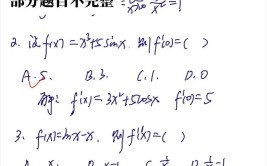 部分题目不完整
2. 设f(x)=x³+5sinx, 则f'(0)=( )
A. 5. B. 3. C. 1. D. 0
解: f'(x)=3x²+5cosx f'(0)=5
3. f(x)=lnx-x, 则f'(x)=( )